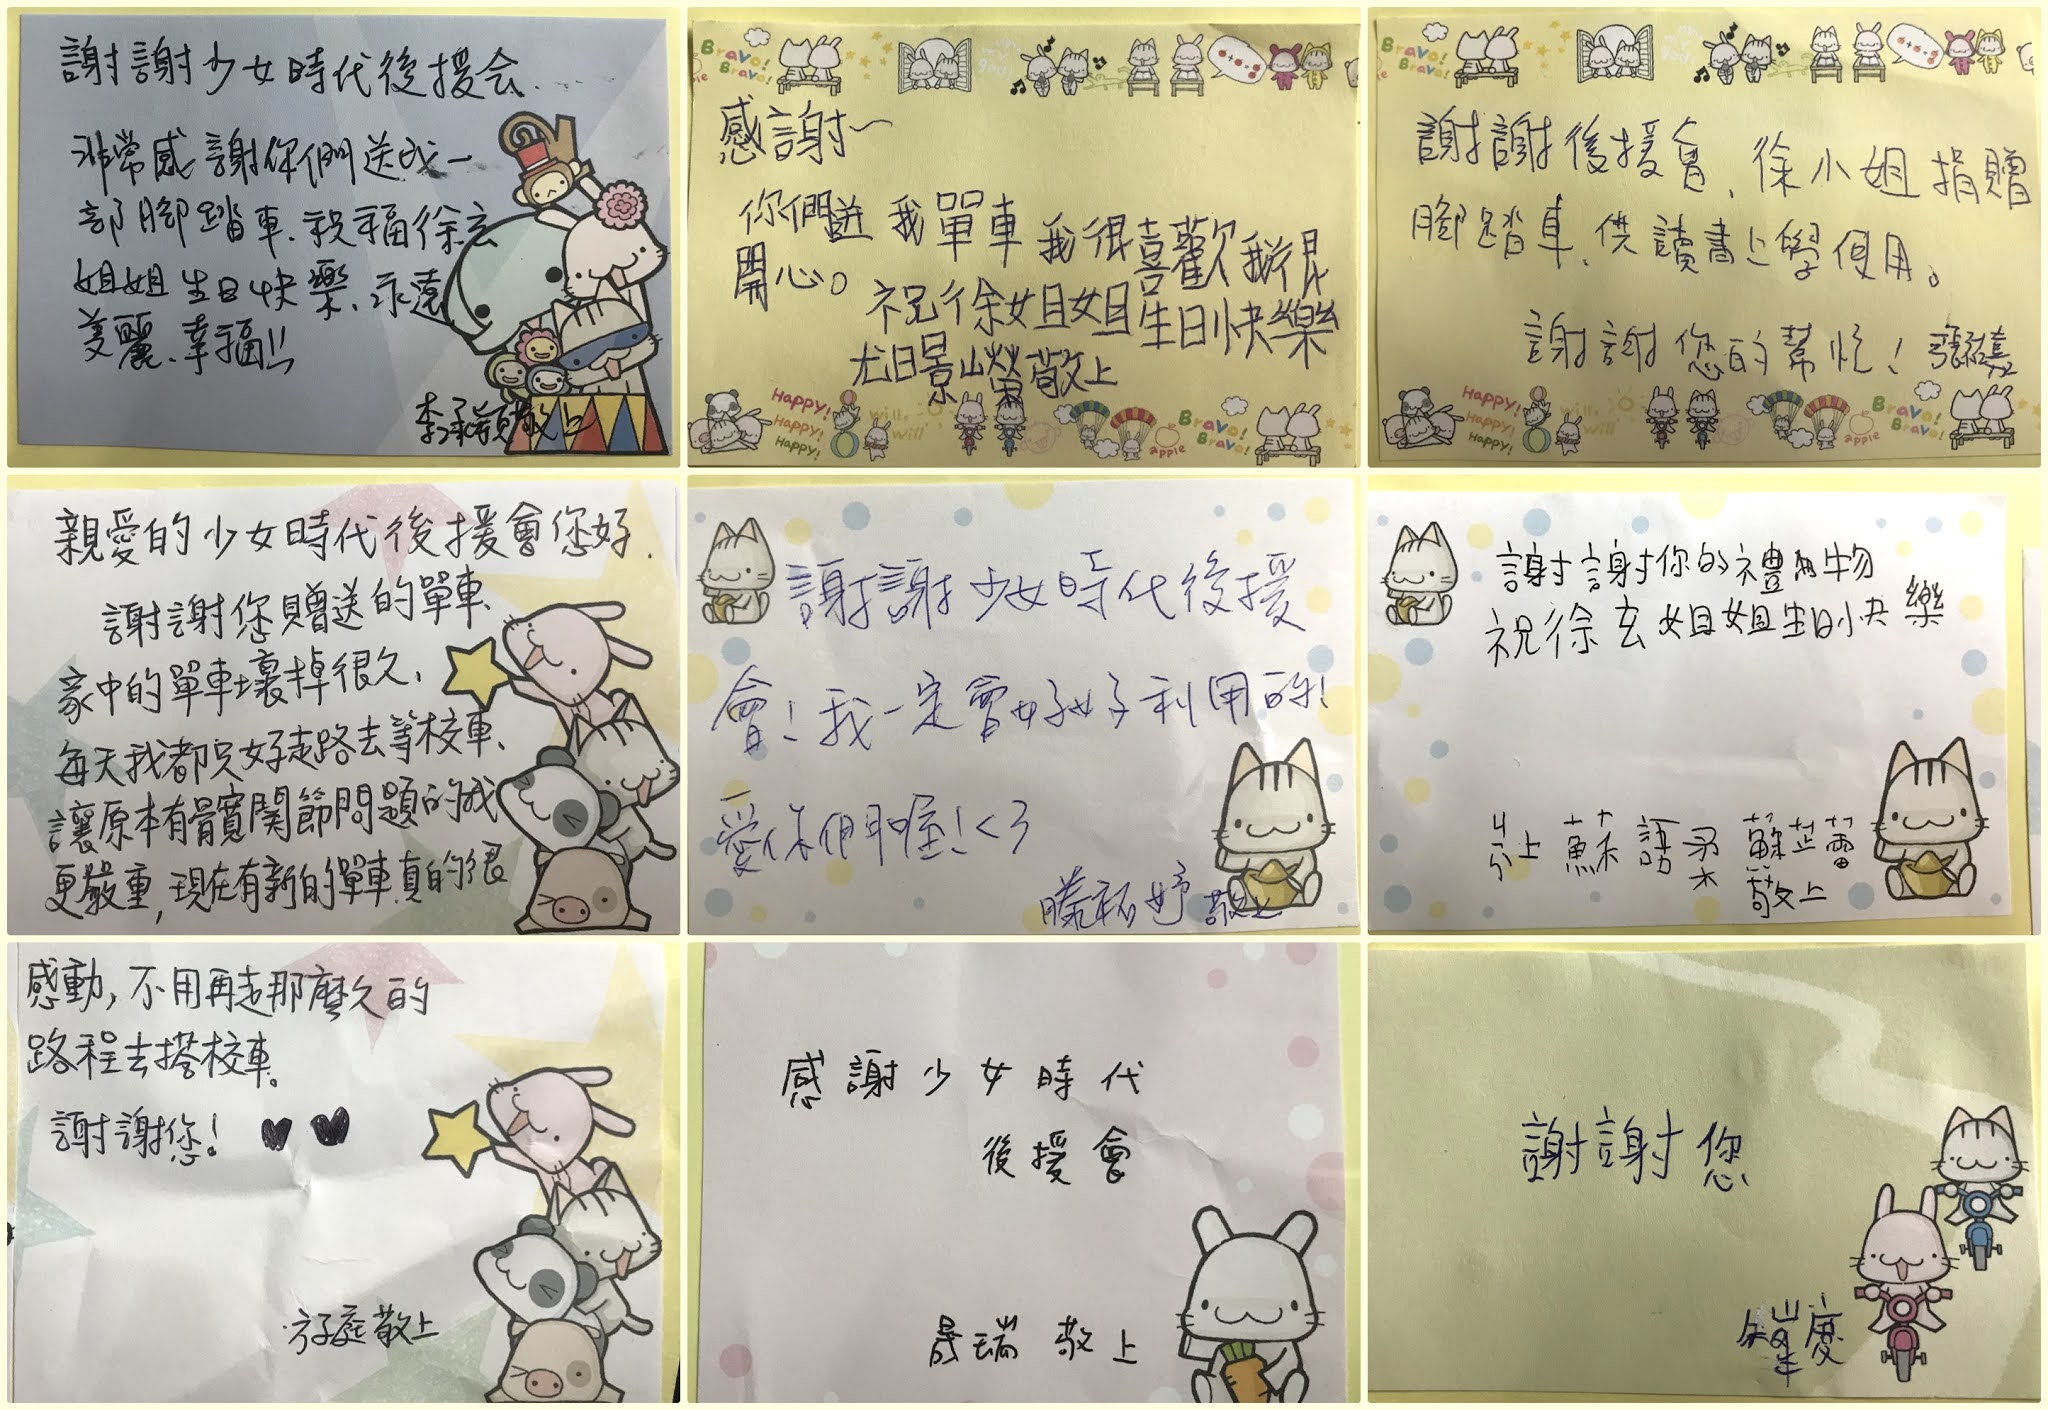 謝謝少女時代後援会.
非常感謝你們送我一
部腳踏車.祝福徐玄
姐姐生日快樂.永遠
美麗.幸福!!
李承穎敬上
Bravo!
Bravo!
感謝~
你們送我單車我很喜歡我很
開心。祝徐姐姐生日快樂
尤日景山榮敬上
Happy!
Happy!
Happy!
will,
will
apple
Bravo!
Bravo!
Bravo!
Bravo!
謝謝後援會,徐小姐捐贈
腳踏車,供讀書上學使用。
謝謝您的幫忙!
Happy!
Happy!
Happy!
will,
will
apple
Bravo!
Bravo!
親愛的少女時代後援會您好.
謝謝您贈送的單車、
家中的單車壞掉很久,
每天我都只好走路去等校車、
讓原本有髖關節問題的我
更嚴重,現在有新的單車真的很
謝謝少女時代後援
會!我一定會好好利用的!
愛你們喔!<3
滕祐妤敬上
謝謝你的禮物
祝徐玄姐姐生日快樂
蘇語柔 蘇芷蕾
敬上
感動,不用再走那麼久的
路程去搭校車。
謝謝您!♥♥
方子庭敬上
感謝少女時代
後援會
晟瑞 敬上
謝謝您